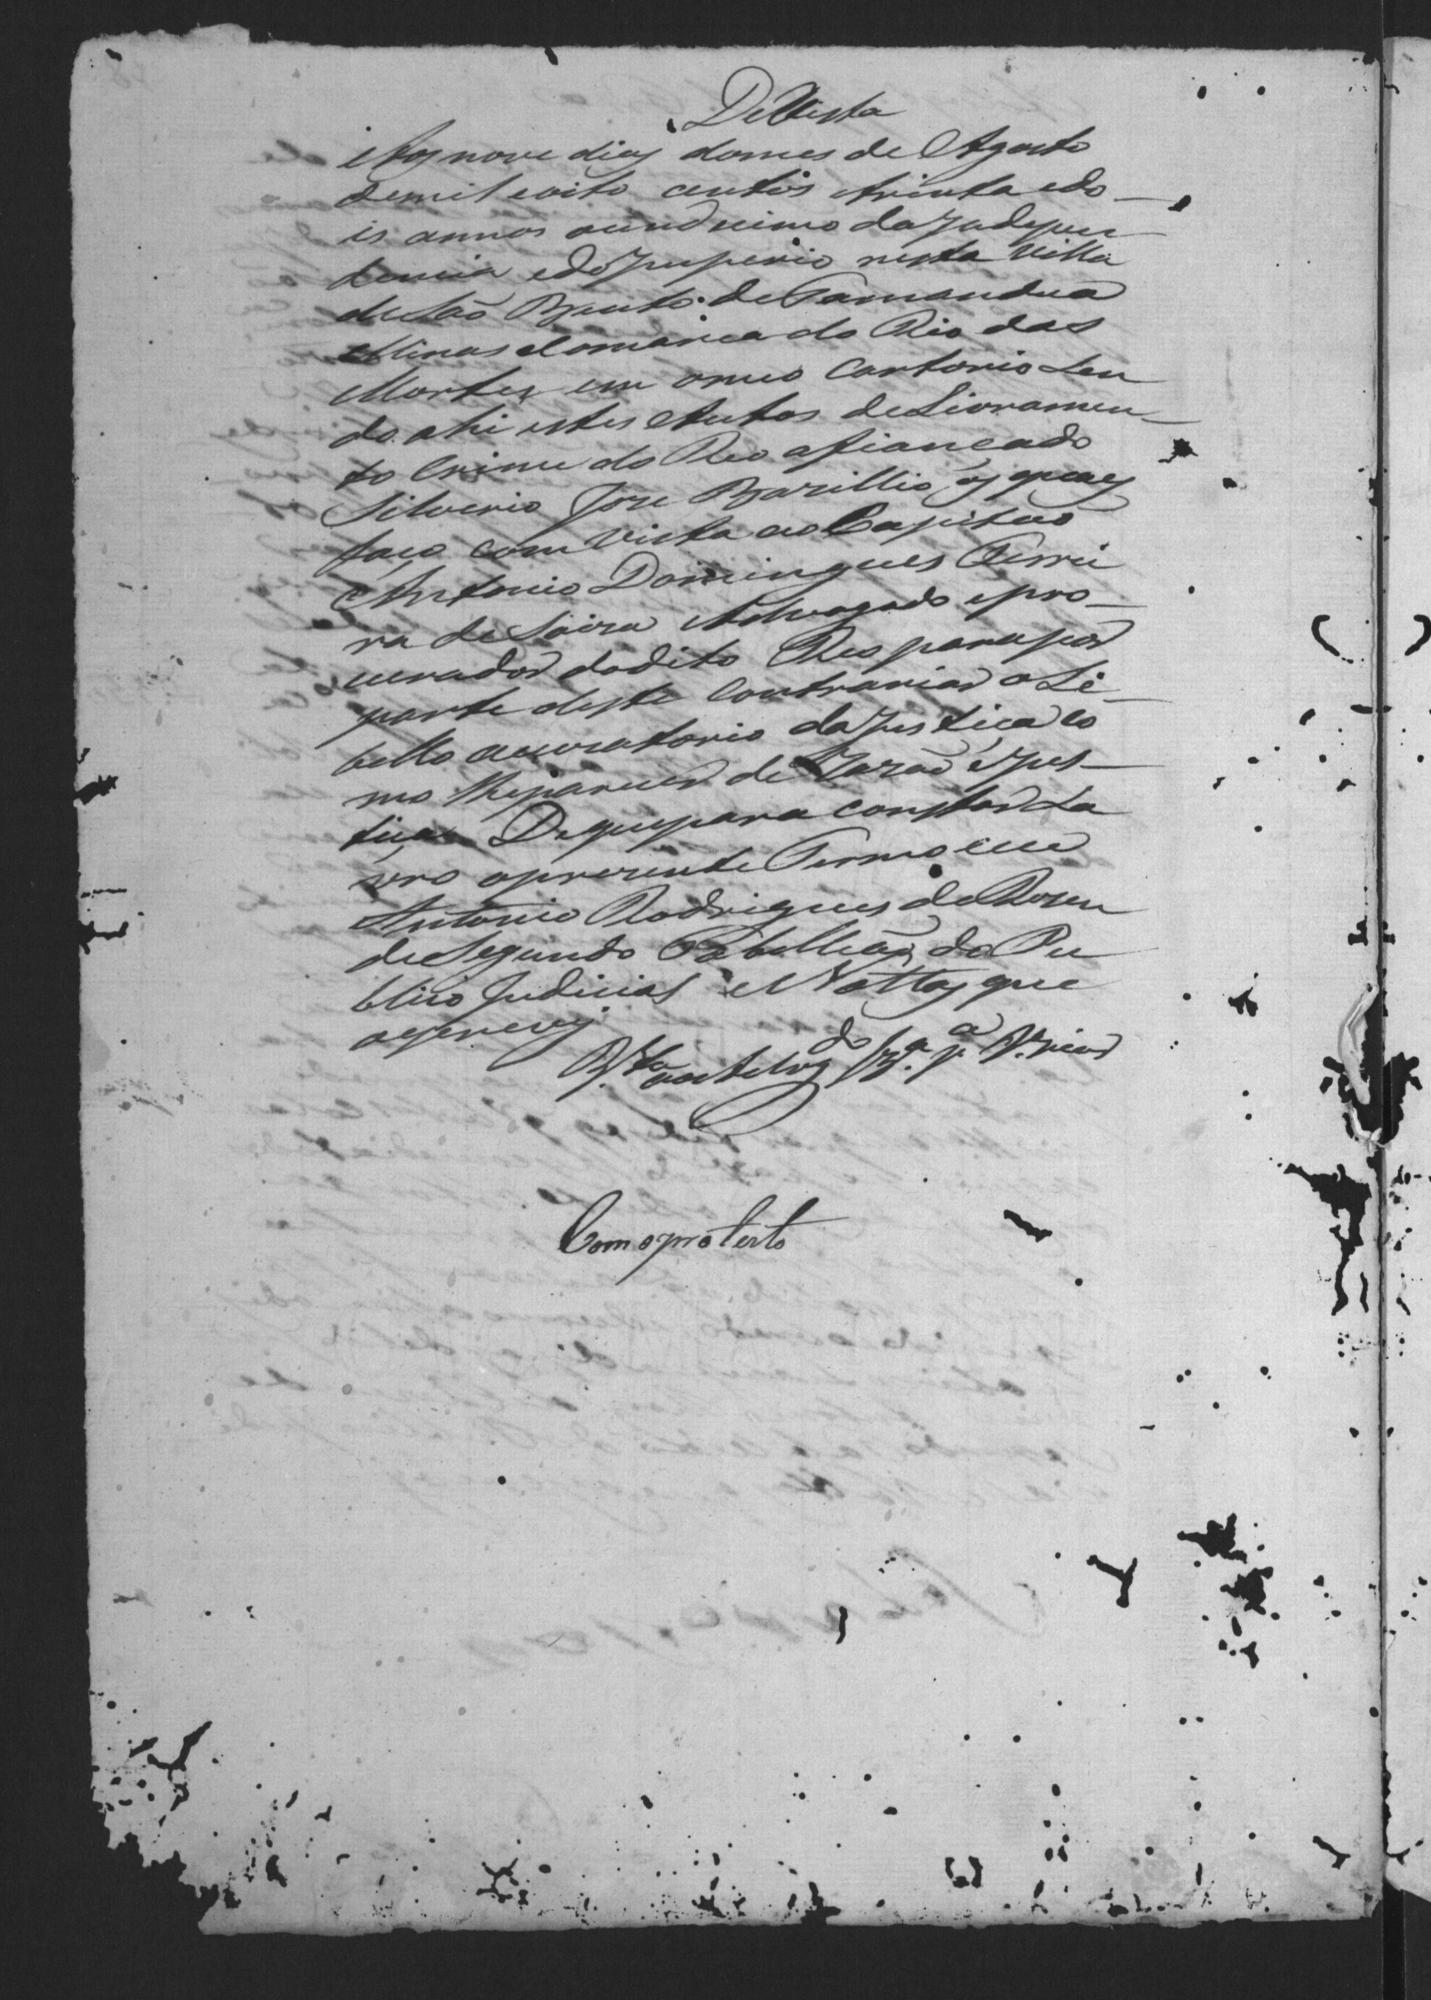 DeVista
Aos nove dias domes de Agosto
demil eoito centos etrinta edo
is annos oundecimo da Indepen
dencia edo Imperio nesta Villa
de São Bento de Tamandua
Minas eComarca do Rio das
Mortes em omeo Cartorio sen
do ahi estes Autos de Livramen
to Crime do Reo afiancado
Silverio Jose Bazillio os quaes
faço com Vista ao Capitão
Antonio Domingues Ferrei
ra de Soiza Advogado epro
curador dodito Reo para por
parte deste Contrariar o Li
bello acuzatorio da Justiça co
mo lhe parecer de Razão eJus
tiça Deque para constar La
vro opresente Termo eeu
Antonio Rodrigues de Rozen
de Segundo Tabellião do Pu
blico Judicial e Nottas que
oescrevy
Como protesto